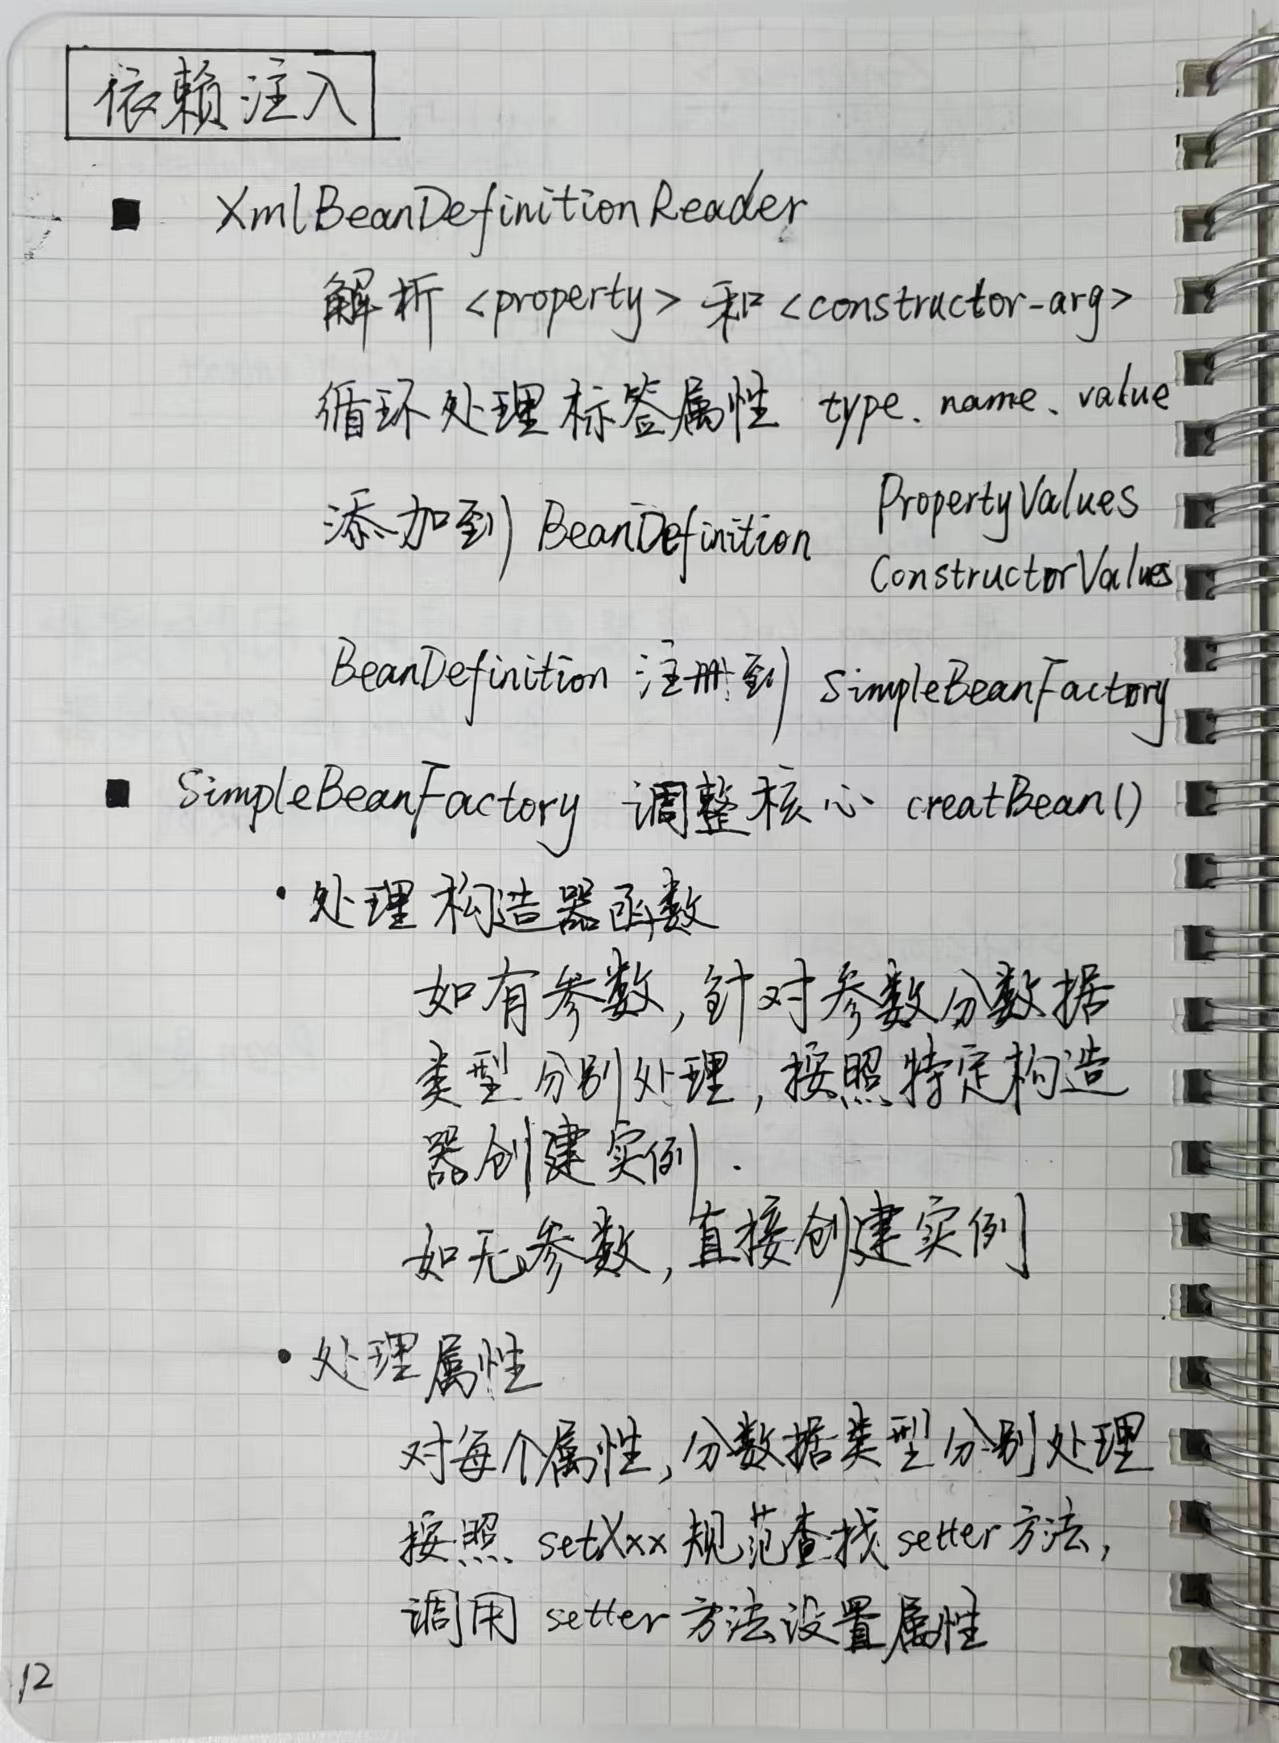 依赖注入
■ XmlBeanDefinitionReader
解析 <property> 和 <constructor-arg>
循环处理标签属性 type、name、value
添加到 BeanDefinition PropertyValues
ConstructorValues
BeanDefinition 注册到 SimpleBeanFactory
■ SimpleBeanFactory 调整核心 creatBean()
· 处理构造器函数
如有参数,针对参数分数据
类型分别处理,按照特定构造
器创建实例.
如无参数,直接创建实例
· 处理属性
对每个属性,分数据类型分别处理
按照 setXxx 规范查找 setter 方法,
调用 setter 方法设置属性
12